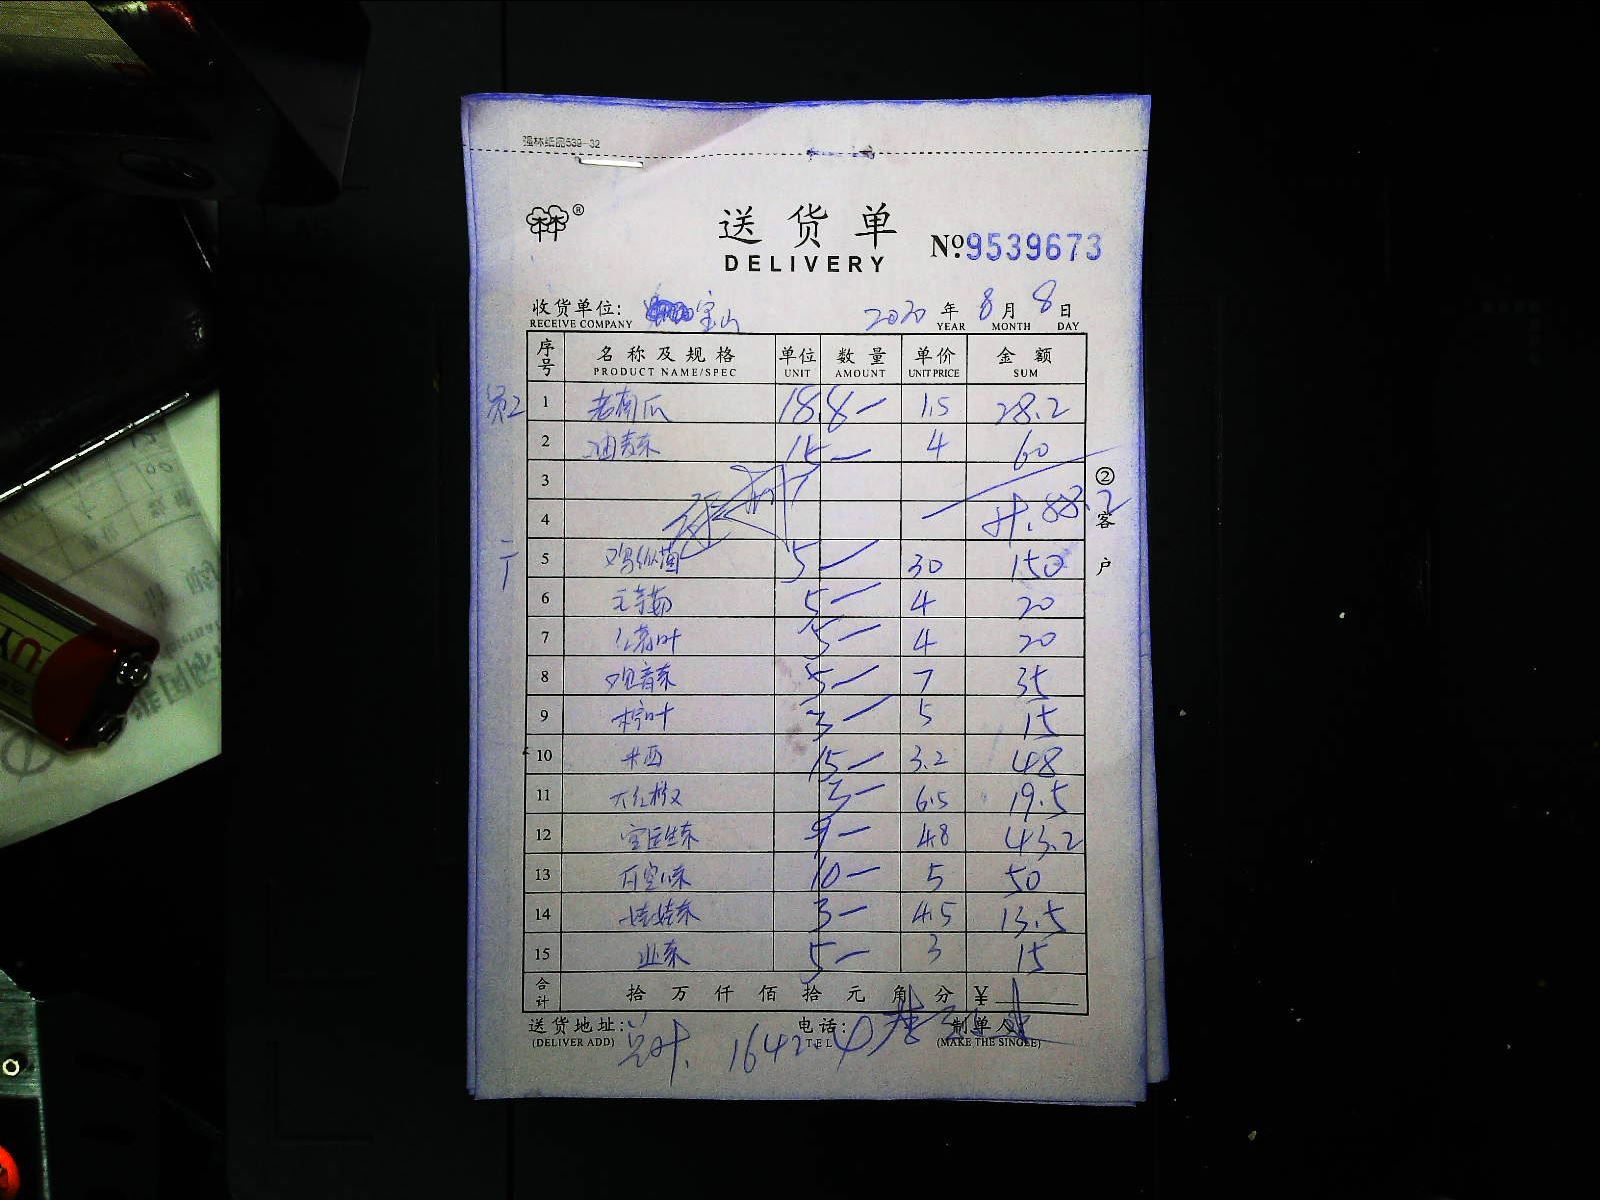 强林纸品539-32
送货单
DELIVERY
№9539673
收货单位: 宝山 2020年8月8日
RECEIVE COMPANY YEAR MONTH DAY
序号 名称及规格 单位 数量 单价 金额
PRODUCT NAME/SPEC UNIT AMOUNT UNIT PRICE SUM
员2 1 老南瓜 18.8— 1.5 28.2
2 油麦菜 15— 4 60
3
4 计.88.2
②客户
5 鸡纵菌 5— 30 150
6 5— 4 20
7 5— 4 20
8 观音菜 5— 7 35
9 柠叶 3— 5 15
10 米西 15— 3.2 48
11 大红椒 3— 6.5 19.5
12 9— 4.8 43.2
13 10— 5 50
14 娃娃菜 3— 4.5 13.5
15 5— 3 15
合计 拾万仟佰拾元角分 ¥
送货地址: 电话: 制单人
(DELIVER ADD) TEL (MAKE THE SINGLE)
总计. 1642.4